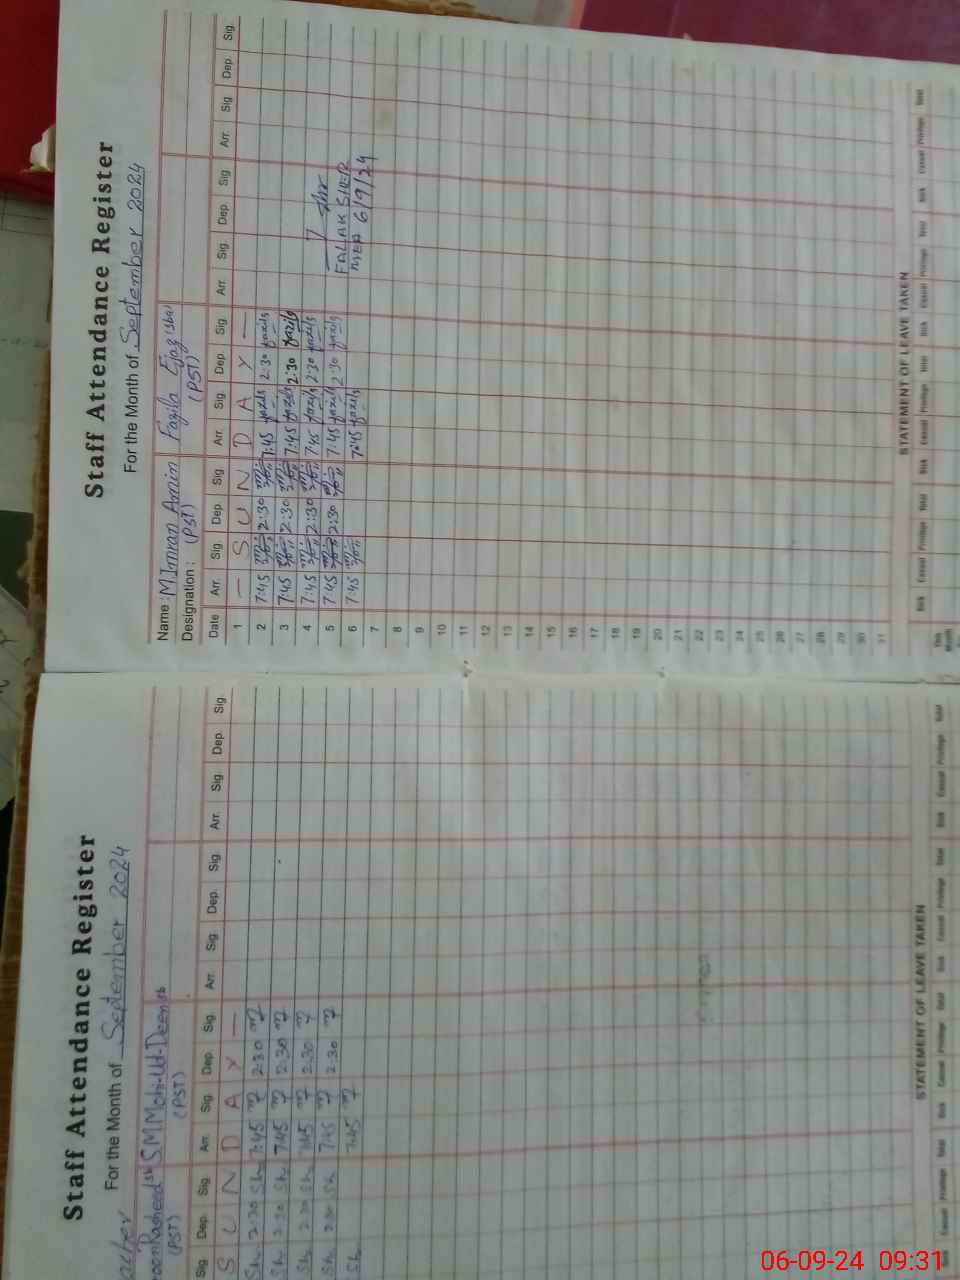 Staff Attendance Register
For the Month of September 2024
Name: M Imran Amin Fazila Ejaz (sba)
Designation: (PST) (PST)
Date Arr. Sig. Dep. Sig. Arr. Sig. Dep. Sig. Arr. Sig. Dep. Sig. Arr. Sig. Dep. Sig.
1 — S U N D A Y —
2 7:45 2:30 7:45 fazila 2:30 fazila
3 7:45 2:30 7:45 fazila 2:30 fazila
4 7:45 2:30 7:45 fazila 2:30 fazila
5 7:45 2:30 7:45 fazila 2:30 fazila FALAK SHER
6 7:45 7:45 fazila MEA 6/9/24
7
8
9
10
11
12
13
14
15
16
17
18
19
20
21
22
23
24
25
26
27
28
29
30
31
STATEMENT OF LEAVE TAKEN
Sick Casual Privilege Total Sick Casual Privilege Total Sick Casual Privilege Total Sick Casual Privilege Total
Staff Attendance Register
For the Month of September 2024
Rasheed sb S.M Mohi-Ud-Deen sb
(PST) (PST)
Sig. Dep. Sig. Arr. Sig. Dep. Sig. Arr. Sig. Dep. Sig. Arr. Sig. Dep. Sig.
S U N D A Y —
Sh 2:30 Sh 7:45 2:30
Sh 2:30 Sh 7:45 2:30
Sh 2:30 Sh 7:45 2:30
Sh 2:30 Sh 7:45 2:30
Sh 7:45
STATEMENT OF LEAVE TAKEN
Casual Privilege Total Sick Casual Privilege Total Sick Casual Privilege Total Sick Casual Privilege Total
06-09-24 09:31